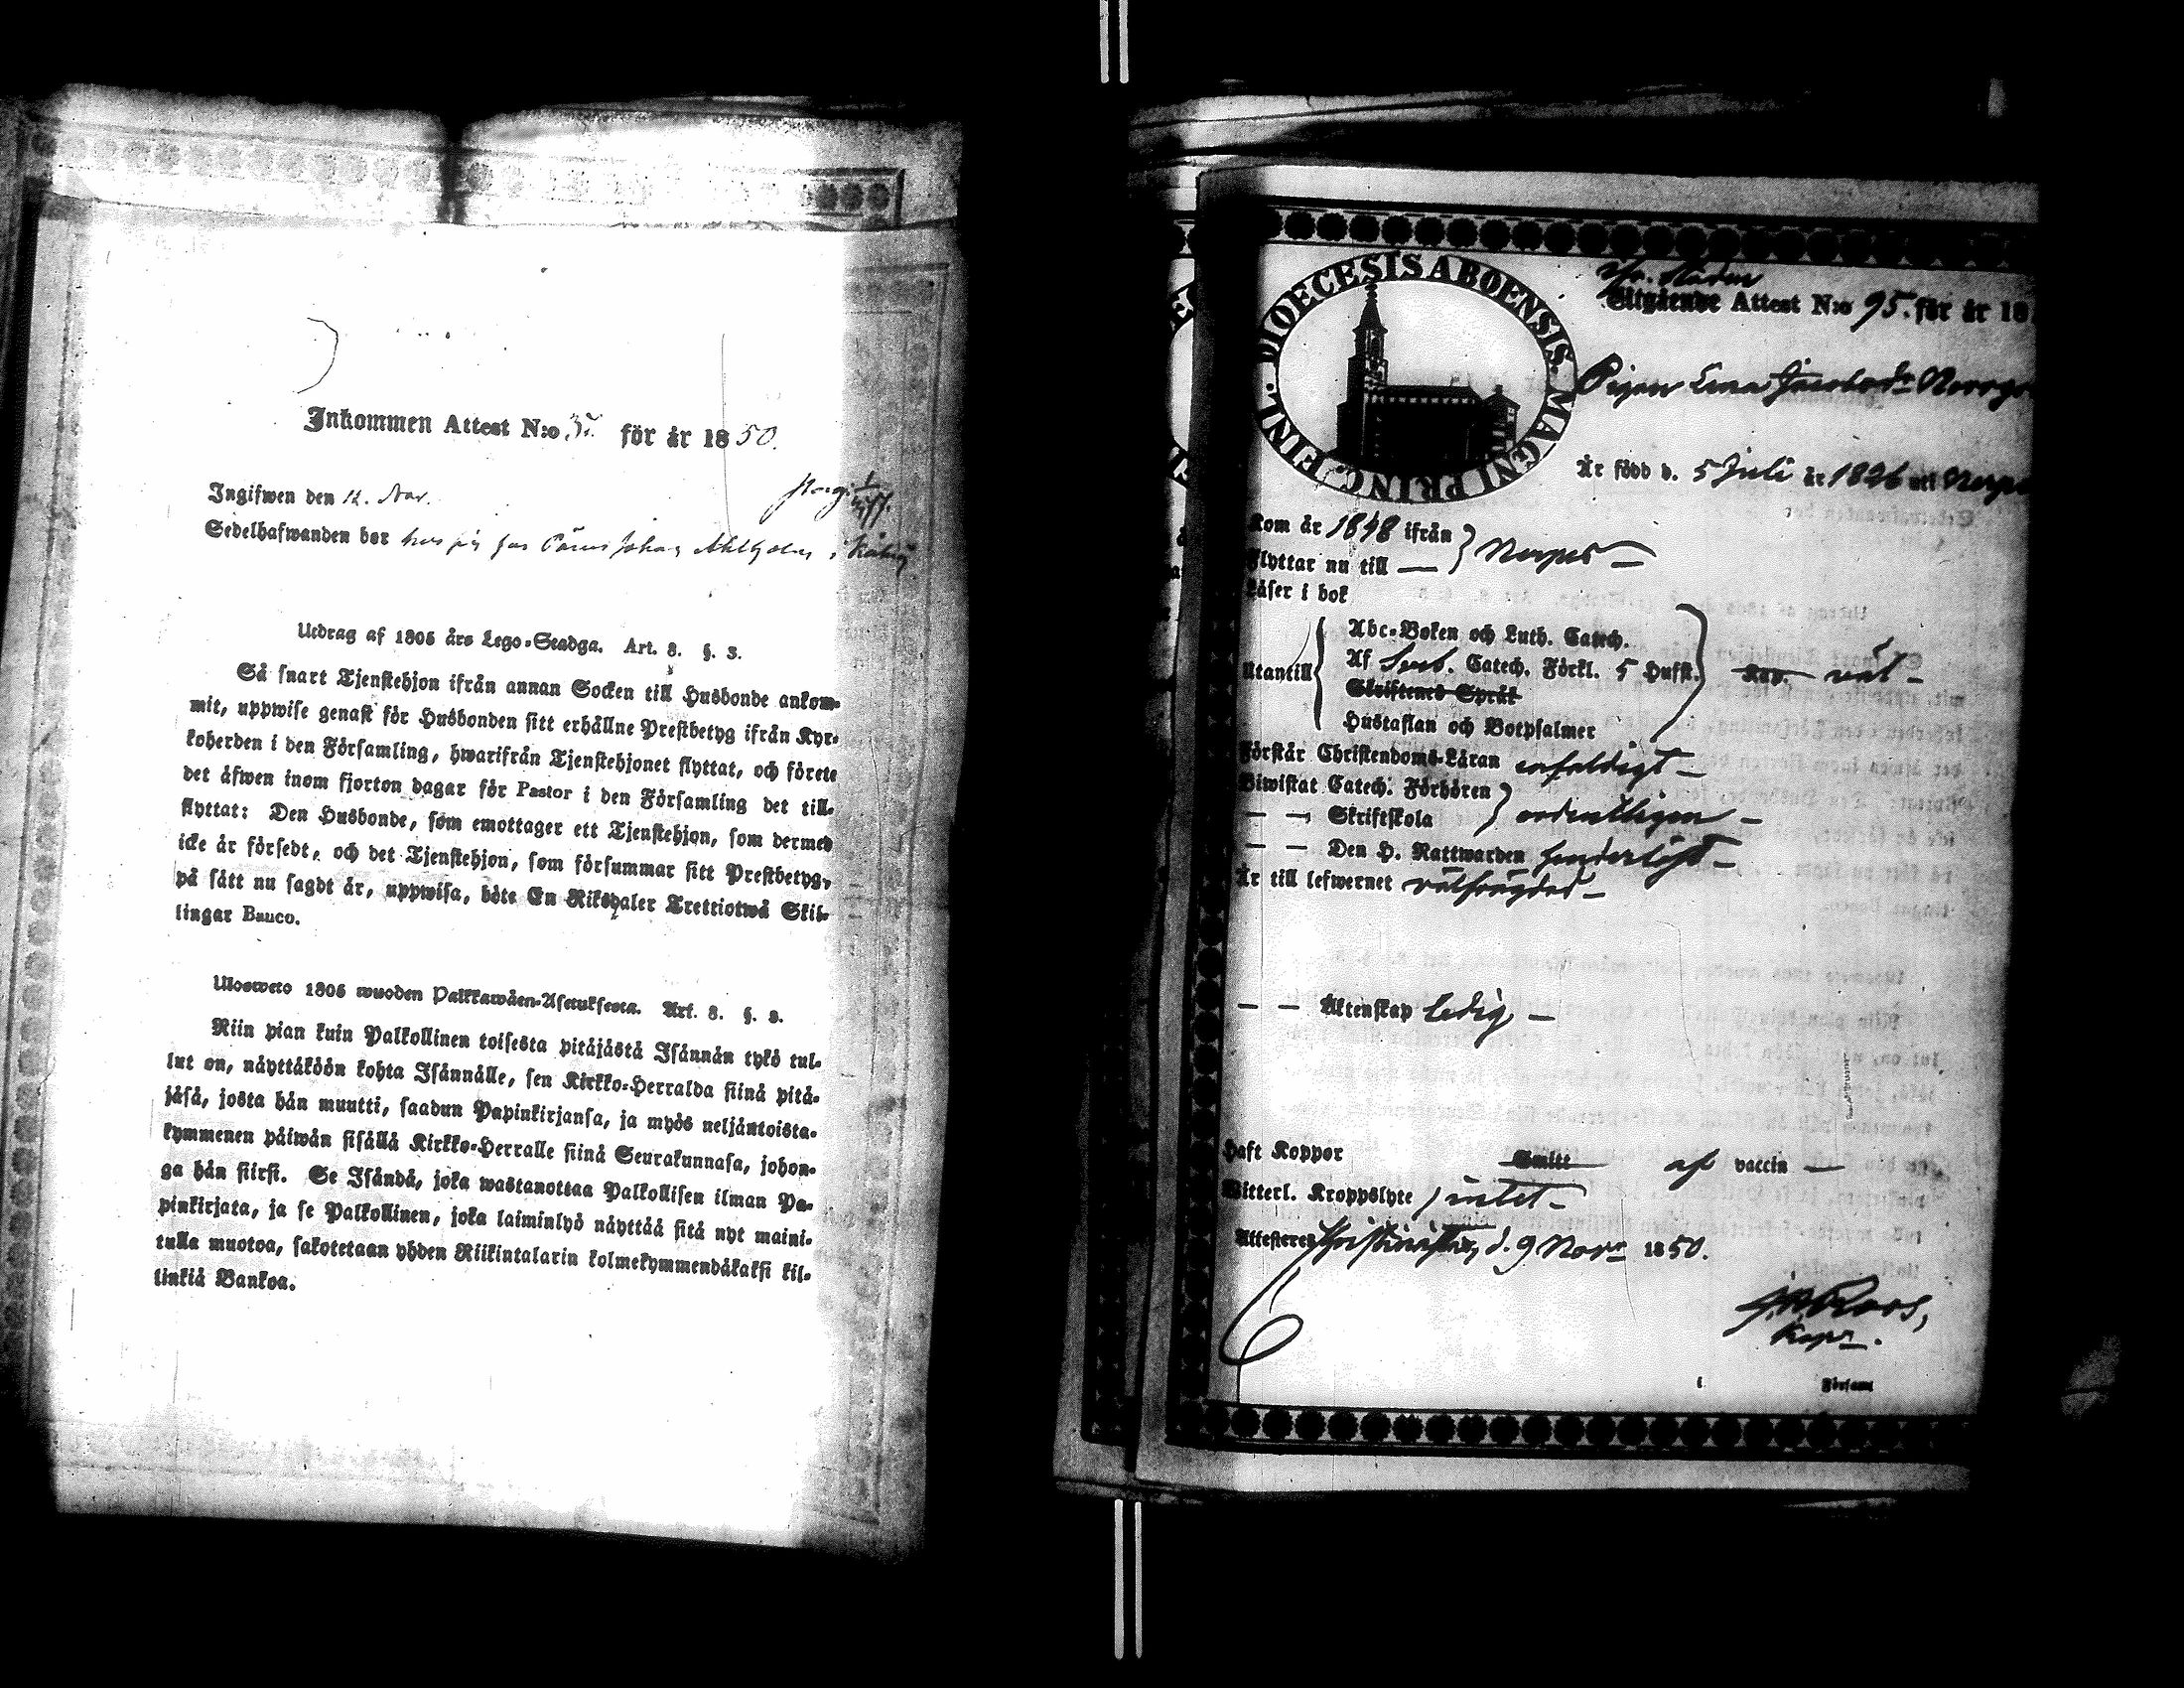 Inkommen Attest N:o för år 1850.
Ingifwen den 12. Nov.
Sedelhafwanden bor hos Johan i
Utdrag af 1805 års Lego-Stadga. Art. 8. §. 3.
Så snart Tjenstehjon ifrån annan Socken till Husbonde ankom-
mit, uppwise genast för Husbonden sitt erhållne Prestbetyg ifrån Kyr-
koherden i den Församling, hwarifrån Tjenstehjonet flyttat, och förete
det äfwen inom fjorton dagar för Pastor i den Församling det till-
flyttat: Den Husbonde, som emottager ett Tjenstehjon, som dermed
icke är försedt, och det Tjenstehjon, som försummar sitt Prestbetyg,
på sätt nu sagdt är, uppwisa, böte En Riksdaler Trettiotwå Skil-
lingar Banco.
Ulosweto 1805 wuoden Palkkawäen-Asetuksesta. Art. 8. §. 3.
Niin pian kuin Palkollinen toisesta pitäjästä Isännän tykö tul-
lut on, näyttäköön kohta Isännälle, sen Kirkko-Herralda siinä pitä-
jäsä, josta hän muutti, saadun Papinkirjansa, ja myös neljäntoista-
kymmenen päiwän sisällä Kirkko-Herralle siinä Seurakunnasa, johon-
ga hän siirsi. Se Isändä, joka wastanottaa Palkollisen ilman Pa-
pinkirjata, ja se Palkollinen, joka laiminlyö näyttää sitä nyt maini-
tulla muotoa, sakotetaan yhden Riikintalarin kolmekymmendäkaksi kil-
linkiä Bankoa.
DIOECESIS ABOENSIS. MAGNI PRINC. FINL.
Utgående Attest N:o 95. för år 18
Pigan Lena Jacobsdr
Är född d. 5 Juli år 1826 uti
Kom år 1848 ifrån
Flyttar nu till — } Nerpes —
Läser i bok
Abc-Boken och Luth. Catech.
Utantill Af Sveb. Catech. Förkl. 5 Hufst. väl —
Skriftenes Språk
Hustaflan och Botpsalmer
Förstår Christendoms-Läran enfaldigt —
Biwistat Catech. Förhören
— — Skriftskola ordentligen —
— — Den H. Nattwarden
Är till lefwernet välfrägdad —
— — Äktenskap ledig —
Haft Koppor Smitt af vaccin —
Witterl. Kroppslyte intet —
Attesteres Christinestad, d. 9 Novr 1850.
Roos,
Kapn.
i Församl